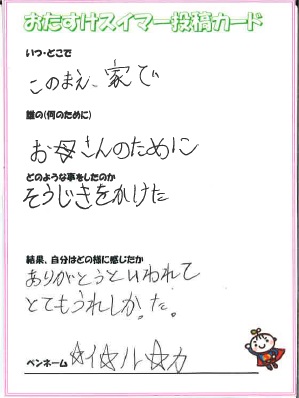 おたすけスイマー投稿カード
いつ・どこで
このまえ、家で
誰の(何のために)
お母さんのために
どのような事をしたのか
そうじきをかけた
結果、自分はどの様に感じたか
ありがとうといわれて
とてもうれしかった。
ペンネーム ☆イ☆ル☆カ